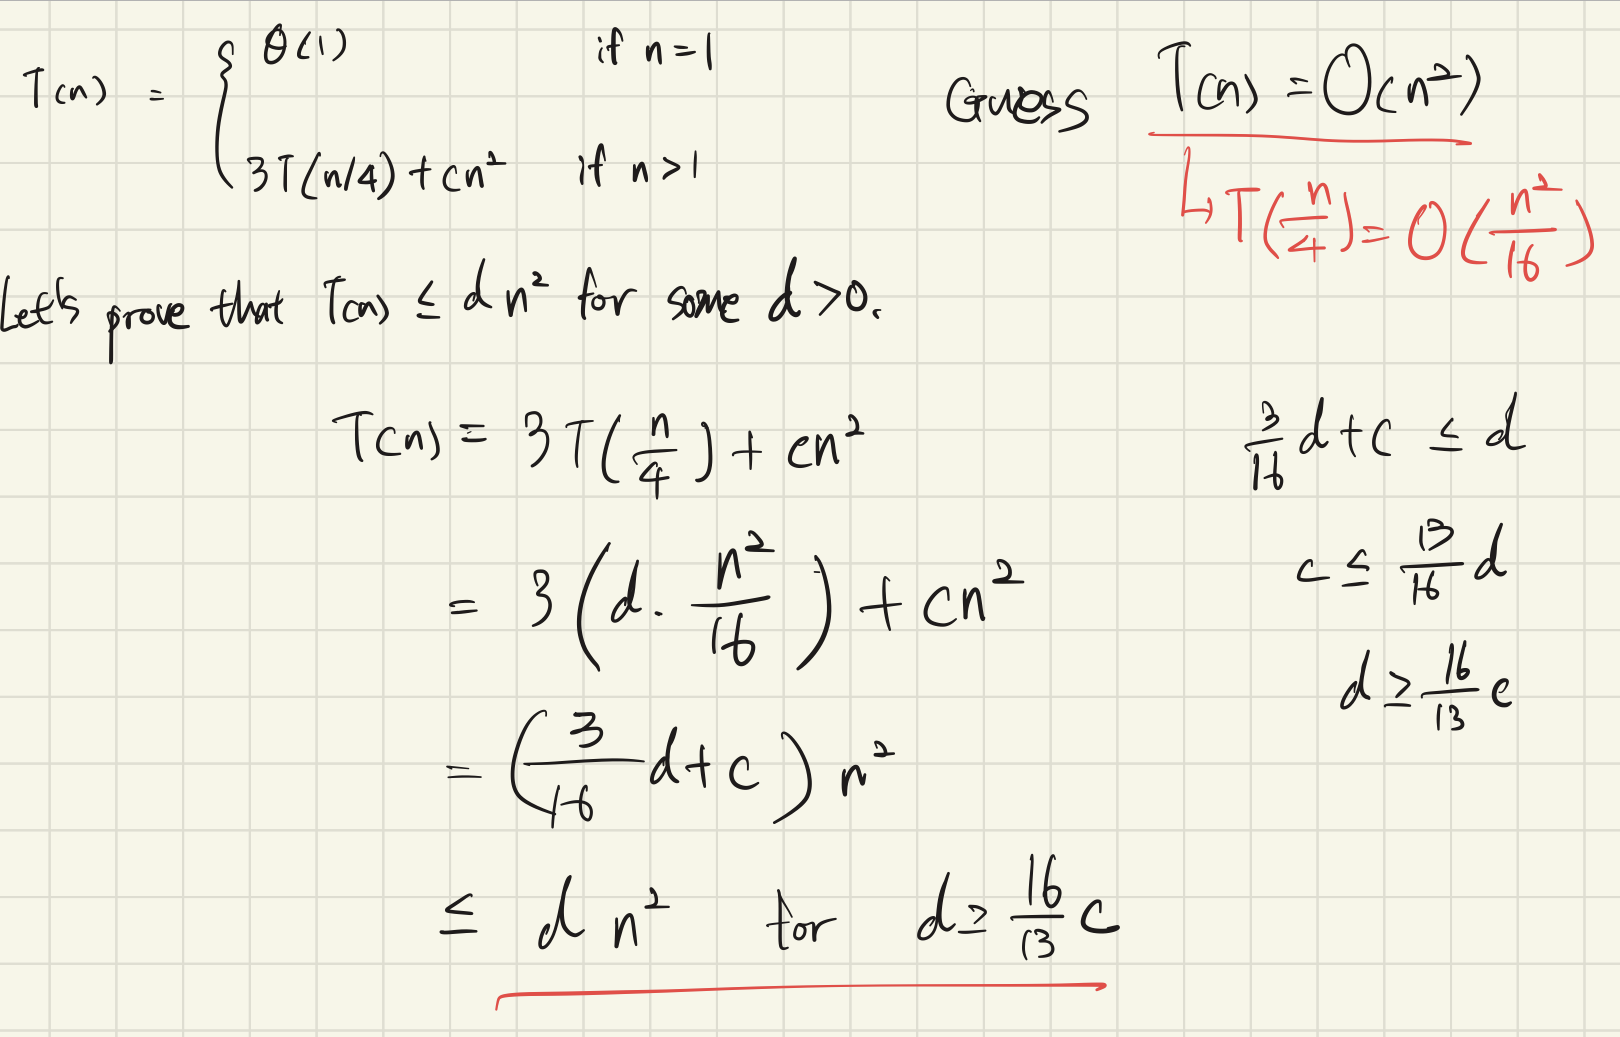 T(n) = { θ(1) if n = 1
3T(n/4) + cn² if n > 1
Guess T(n) = O(n²)
↳ T(n/4) = O(n²/16)
Let's prove that T(n) ≤ dn² for some d > 0.
T(n) = 3T(n/4) + cn²
= 3(d · n²/16) + cn²
= (3/16 d + c) n²
≤ d n² for d ≥ 16/13 c
3/16 d + c ≤ d
c ≤ 13/16 d
d ≥ 16/13 c